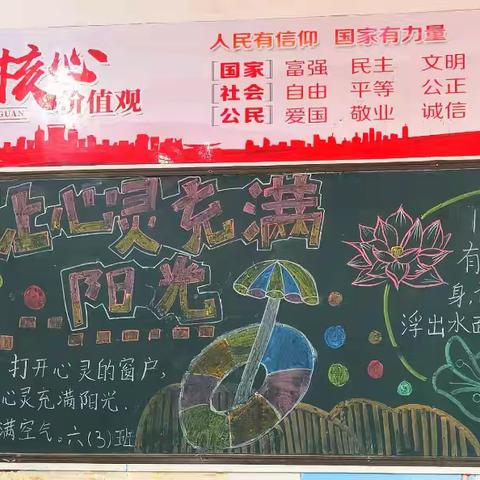 核心
价值观
GUAN
人民有信仰 国家有力量
[国家] 富强 民主 文明
[社会] 自由 平等 公正
[公民] 爱国 敬业 诚信
让心灵充满
阳光
打开心灵的窗户,
心灵充满阳光.
满空气。六(3)班
有
身,
浮出水面